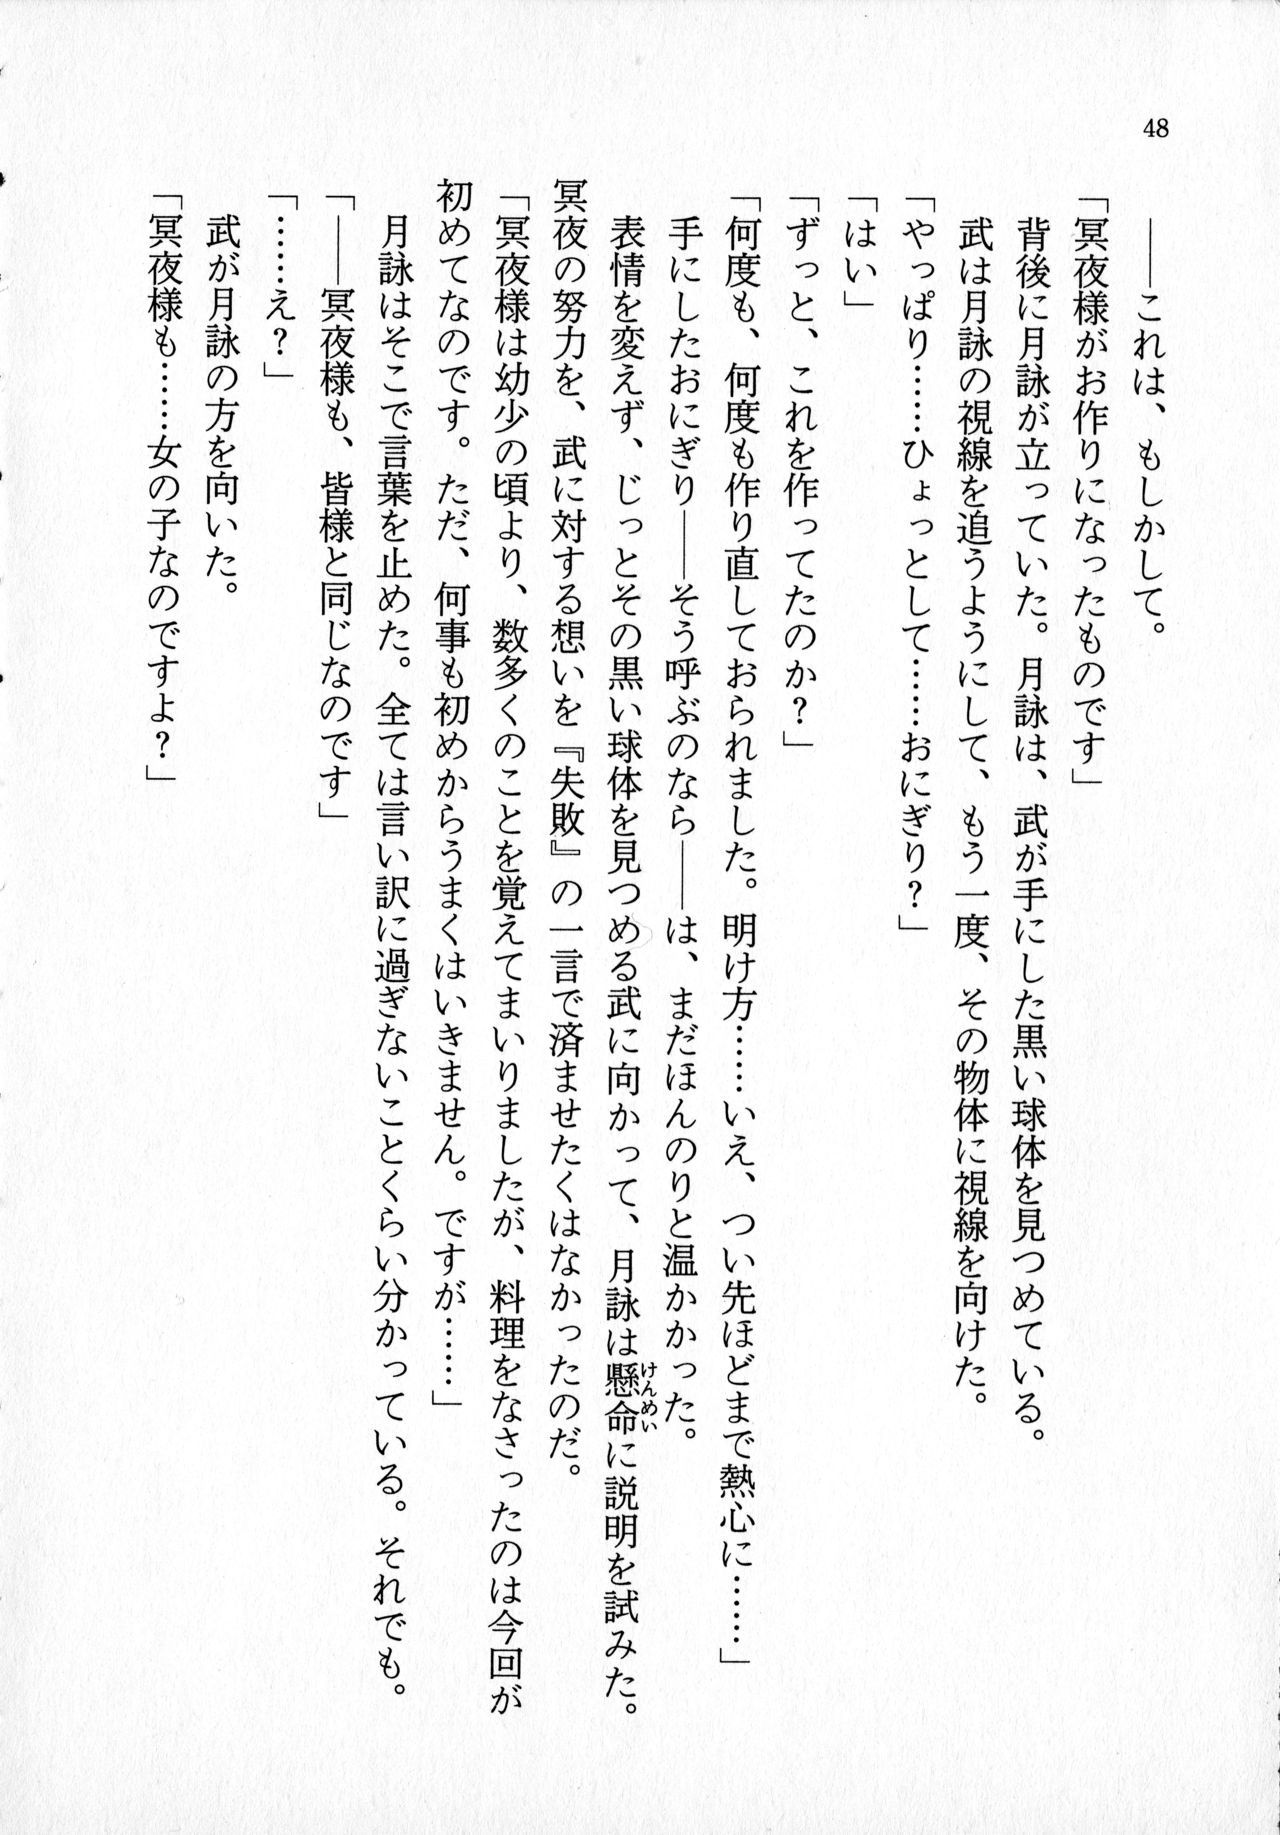 48
――これは、もしかして。
「冥夜様がお作りになったものです」
背後に月詠が立っていた。月詠は、武が手にした黒い球体を見つめている。
武は月詠の視線を追うようにして、もう一度、その物体に視線を向けた。
「やっぱり……ひょっとして……おにぎり？」
「はい」
「ずっと、これを作ってたのか？」
「何度も、何度も作り直しておられました。明け方……いえ、つい先ほどまで熱心に……」
手にしたおにぎり――そう呼ぶのなら――は、まだほんのりと温かかった。
表情を変えず、じっとその黒い球体を見つめる武に向かって、月詠は懸命に説明を試みた。
けんめい
冥夜の努力を、武に対する想いを『失敗』の一言で済ませたくはなかったのだ。
「冥夜様は幼少の頃より、数多くのことを覚えてまいりましたが、料理をなさったのは今回が
初めてなのです。ただ、何事も初めからうまくはいきません。ですが……」
月詠はそこで言葉を止めた。全ては言い訳に過ぎないことくらい分かっている。それでも。
「――冥夜様も、皆様と同じなのです」
「……え？」
武が月詠の方を向いた。
「冥夜様も……女の子なのですよ？」